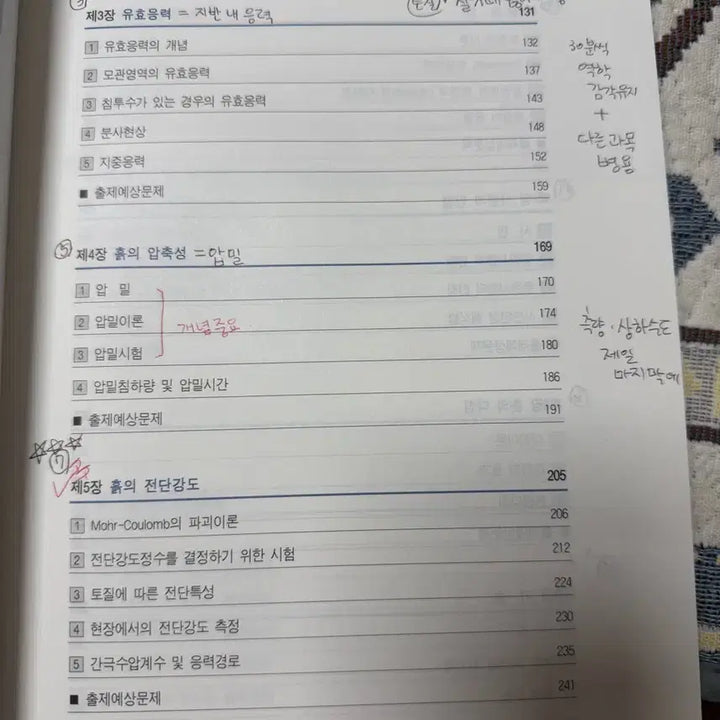 제3장 유효응력 = 지반 내 응력 131
1 유효응력의 개념 132
2 모관영역의 유효응력 137
3 침투수가 있는 경우의 유효응력 143
4 분사현상 148
5 지중응력 152
■ 출제예상문제 159
30분씩
역학
감각유지
+
다른 과목
병용
⑤ 제4장 흙의 압축성 = 압밀 169
1 압 밀 170
2 압밀이론 174
3 압밀시험 180
개념 중요
4 압밀침하량 및 압밀시간 186
■ 출제예상문제 191
측량·상하수도
제일
마지막에
⑦
제5장 흙의 전단강도 205
1 Mohr-Coulomb의 파괴이론 206
2 전단강도정수를 결정하기 위한 시험 212
3 토질에 따른 전단특성 224
4 현장에서의 전단강도 측정 230
5 간극수압계수 및 응력경로 235
■ 출제예상문제 241